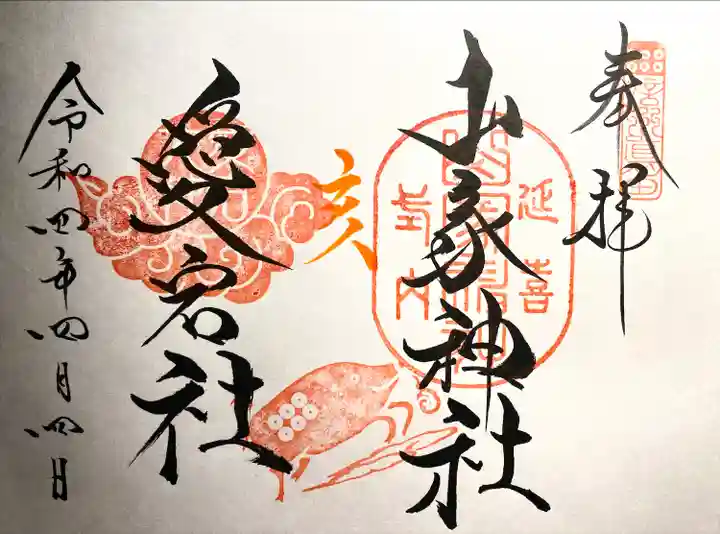 奉拝
山家神社
延喜
式内
山家神社
亥
愛宕社
令和四年四月四日